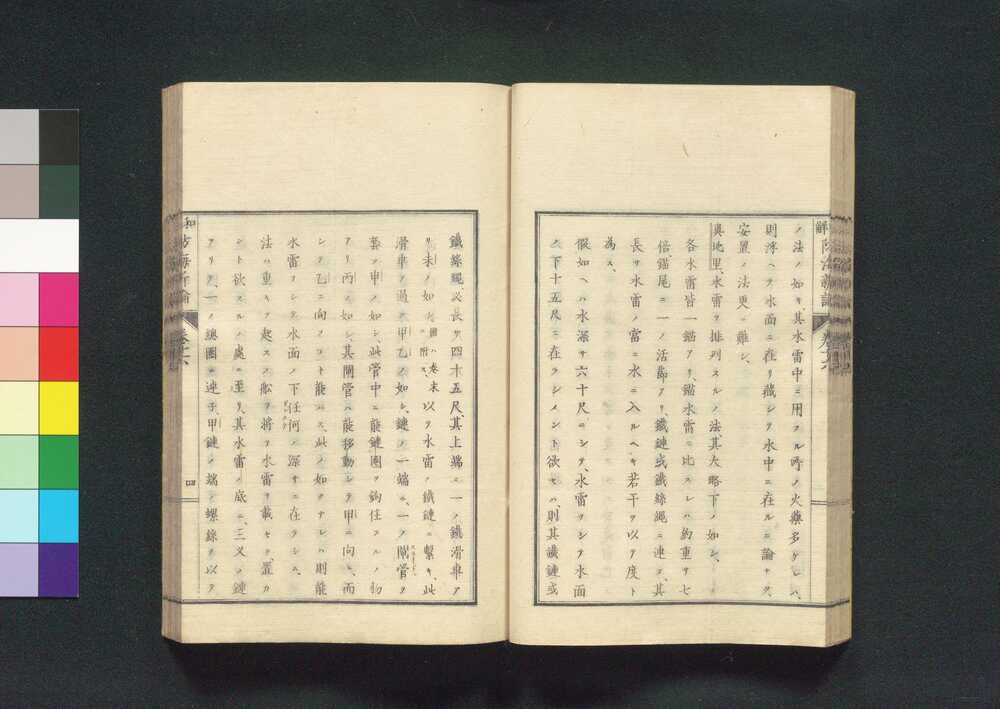 ノ法ノ如キ、其水雷中ニ用フル所ノ火藥多ケレハ、
則浮ヘテ水面ニ在リ、藏シテ水中ニ在ルニ論ナク、
安置ノ法更ニ難シ、
奥地里、水雷ヲ排列スルノ法、其大略下ノ如シ、
各水雷皆一錨アリ、錨水雷ニ比スレハ約重サ七
倍、錨尾ニ一ノ活節アリ、鐵鏈或鐵絲繩ニ連ヌ、其
長サ水雷ノ當ニ水ニ入ルヘキ若干ヲ以テ度ト
為ス、
假如ヘハ水深サ六十尺ニシテ、水雷ヲシテ水面
ノ下十五尺ニ在ラシメント欲セハ、則其鐵鏈或
鐵絲繩、必長サ四十五尺、其上端ニ一ノ鐵滑車ア
リ、未ノ如シ、圖ハ卷末ニ附ス、以テ水雷ノ鐵鏈ニ繫キ、此
滑車ヲ過ク、甲乙ノ如シ、鏈ノ一端ニ、一ノ閘管ヲ
套ツ、甲ノ如シ、此管中ニ能鏈圈ヲ鈎住スルノ物
アリ、丙ノ如シ、其閘管ハ能移動シテ甲ニ向ヒ、而
シテ乙ニ向フコト能ハス、此ノ如クナレハ則能
水雷ヲシテ水面ノ下任何ノ深サニ在ラシム、
法ハ重キヲ起スノ船ヲ將テ水雷ヲ載セテ、置カ
ント欲スルノ處ニ至リ、其水雷ノ底ニ、三叉ノ鏈
アリテ、一ノ總圈ニ連子、甲鏈ノ端ノ螺絲ヲ以テ
防海新論
卷十六
四